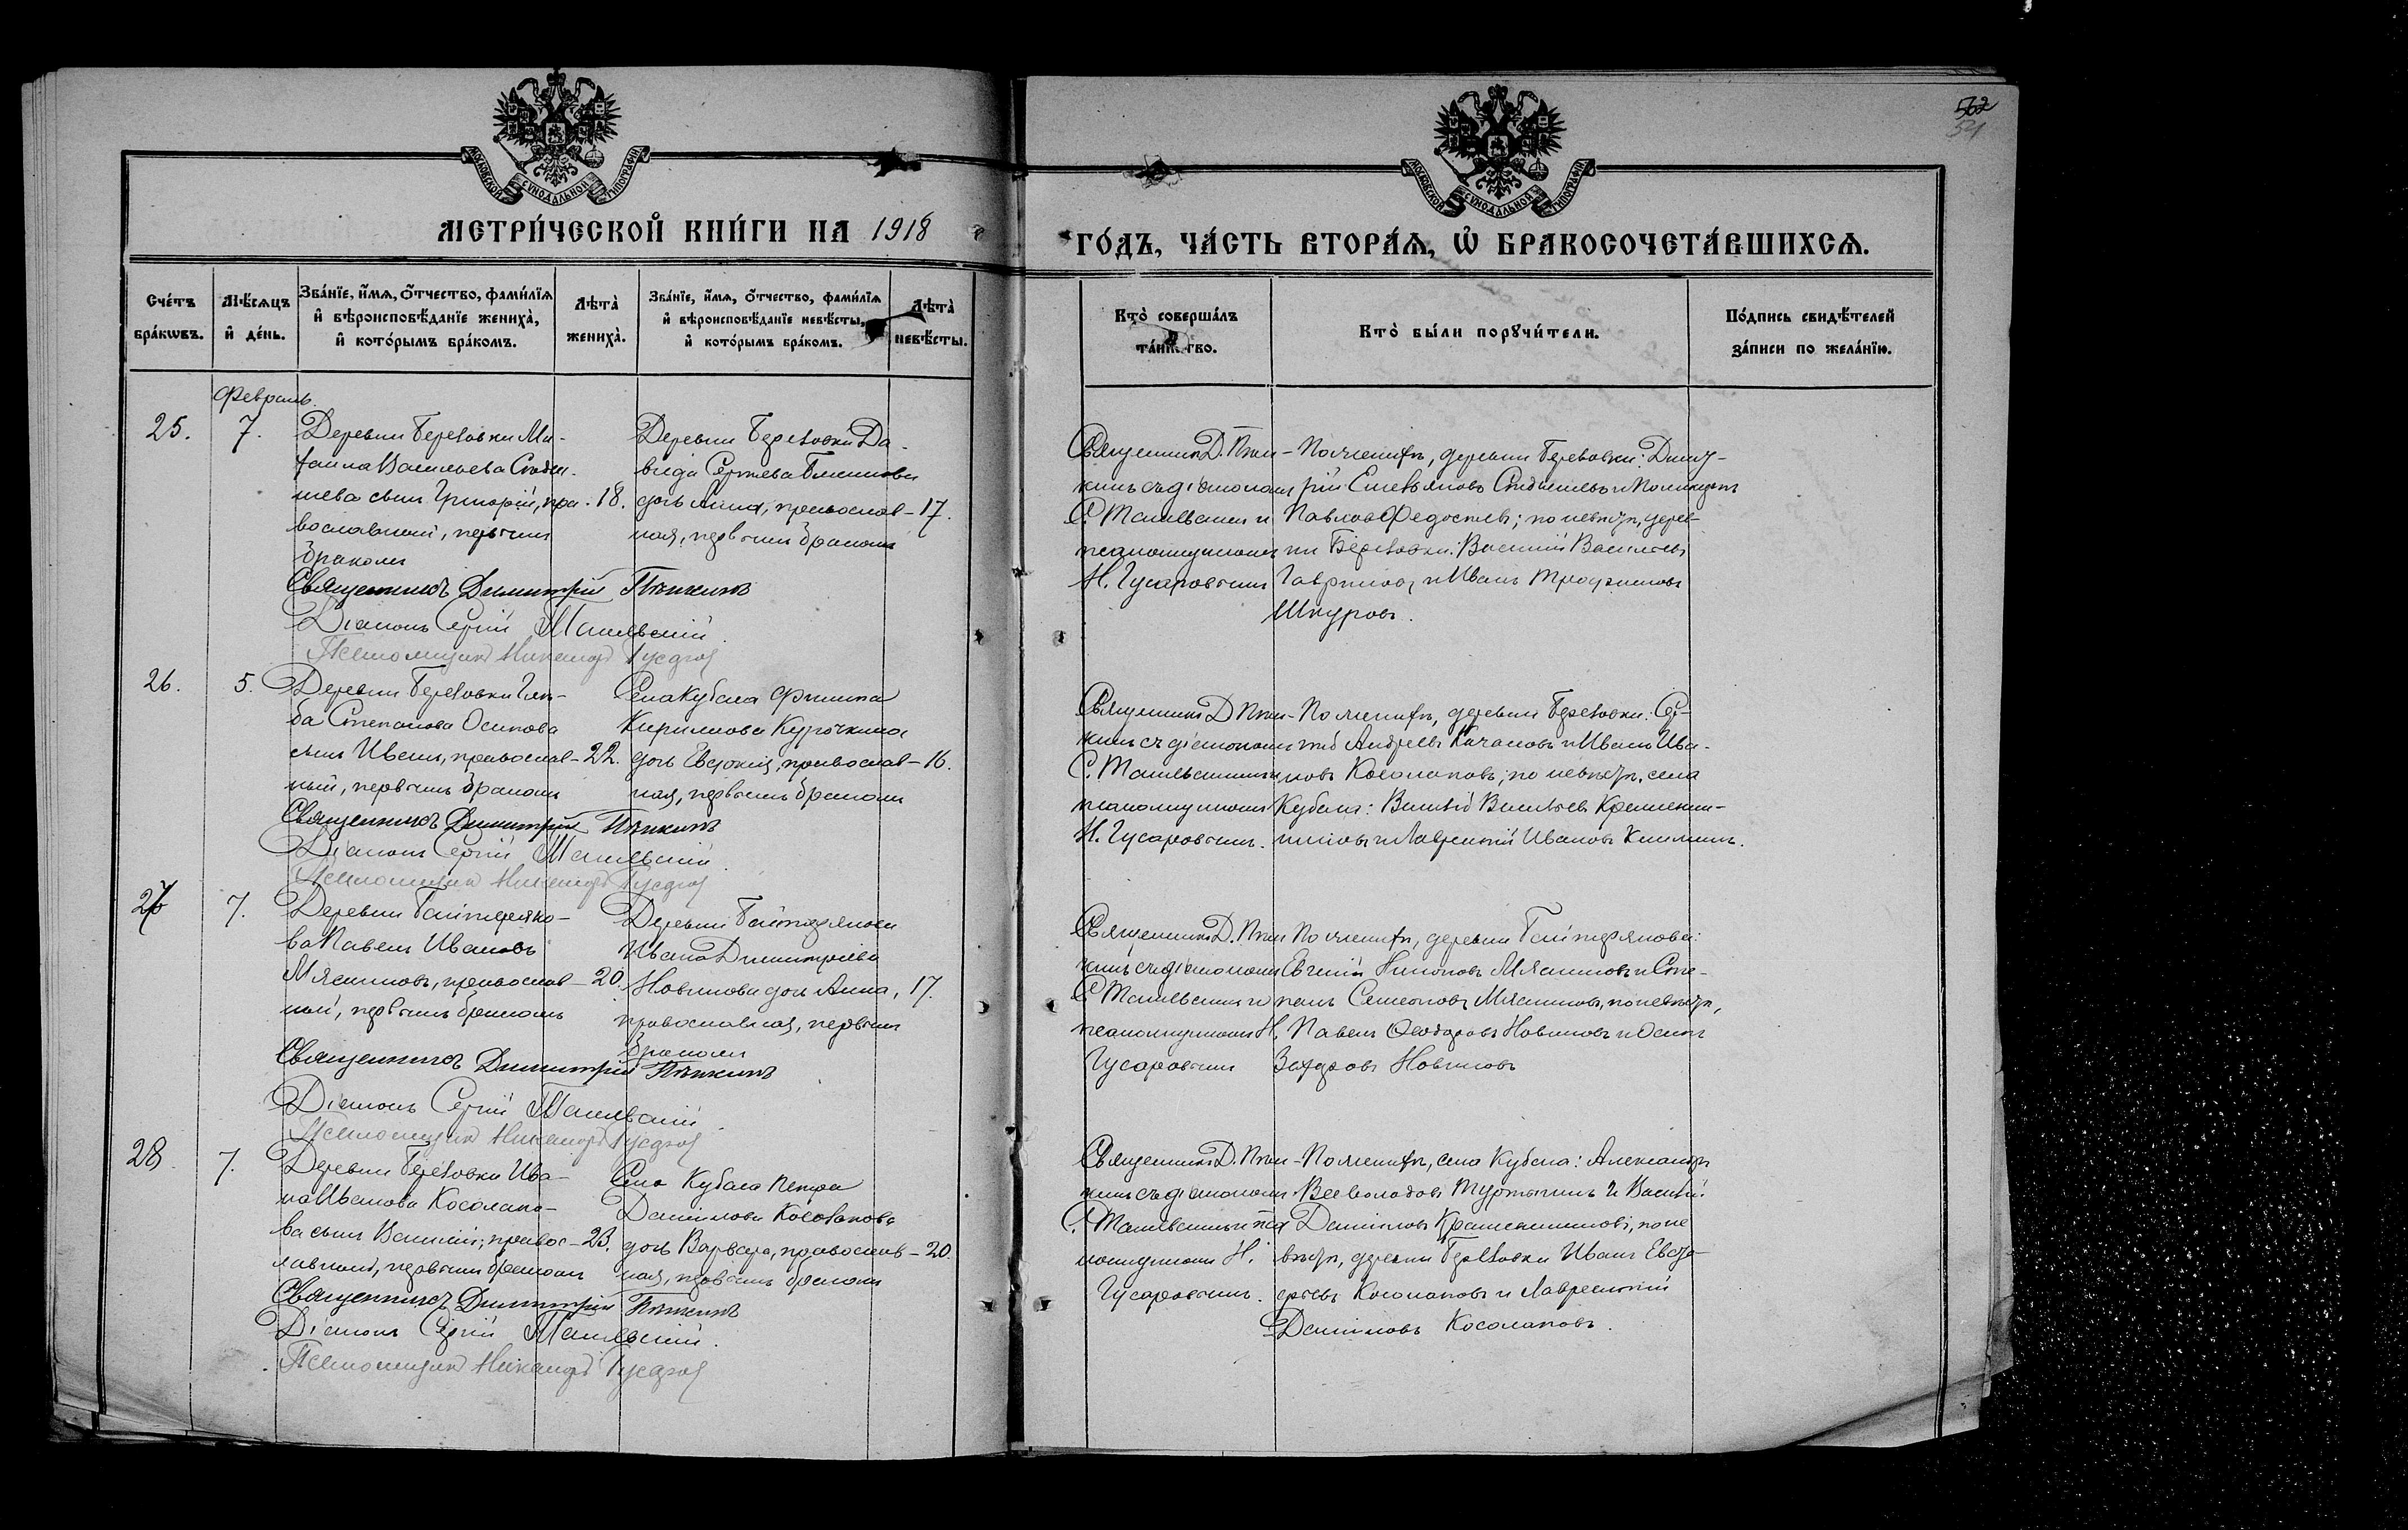 562
521
МОСКОВСКОЙ СѴНОДАЛЬНОЙ ТИПОГРАФІИ
МОСКОВСКОЙ СѴНОДАЛЬНОЙ ТИПОГРАФІИ
МЕТРИ́ЧЕСКОЙ КНИ́ГИ НА 1918
ГО́ДЪ, ЧА́СТЬ ВТОРА́Ѧ, Ѡ БРАКОСОЧЕТА́ВШИХСѦ.
Сче́тъ бра́кѡвъ.
Мѣ́сѧцъ и҆ де́нь.
Зва́нїе, и҆́мѧ, ѻ҆́тчество, фами́лїѧ и҆ вѣроисповѣ́данїе жениха̀, и҆ кото́рымъ бра́комъ.
Лѣта̀ жениха̀.
Зва́нїе, и҆́мѧ, ѻ҆́тчество, фами́лїѧ и҆ вѣроисповѣ́данїе невѣ́сты, и҆ кото́рымъ бра́комъ.
Лѣта̀ невѣ́сты.
Кто̀ соверша́лъ та́инство.
Кто̀ бы́ли порꙋчи́тели.
По́дпись свидѣ́телей за́писи по жела́нїю.
Февраль.
25.
7.
Деревни Березовки Ми-
хаила Васильева
сынъ Григорій, пра-
вославный, первымъ
бракомъ
18.
Деревни Березовки Да-
вида Сергѣева
дочь Анна, православ-
ная, первымъ бракомъ
17.
Священникъ Д. Пѣш-
кинъ съ діакономъ
С.
псаломщикомъ
Н. Гусаровымъ
По женихѣ, деревни Березовки: Димит-
рій
Павловъ Федосѣевъ; по невѣстѣ, дерев-
ни Березовки: Василій Васильевъ
Гавриловъ и Иванъ Трофимовъ
Шкуровъ.
Священникъ Димитрій Пѣшкинъ
Діаконъ Сергій
Псаломщикъ Никаноръ Гусаровъ
26.
5.
Деревни Березовки Глѣ-
ба Степанова Осипова
сынъ Иванъ, православ-
ный, первымъ бракомъ
22.
Села Кубаса Филиппа
Кириллова Курочкина
дочь Евдокія, православ-
ная, первымъ бракомъ
16.
Священникъ Д Пѣш-
кинъ съ діакономъ
С.
псаломщикомъ
Н. Гусаровымъ.
По женихѣ, деревни Березовки: Сер-
гѣй Андреевъ Качановъ и Иванъ Ива-
новъ Косолаповъ; по невѣстѣ, села
Кубаса: Василій Васильевъ Крашенин-
никовъ и Лаврентій Ивановъ
Священникъ Димитрій Пѣшкинъ
Діаконъ Сергій
Псаломщикъ Никаноръ Гусаровъ
27
7.
Деревни Байтеряко-
ва Павелъ Ивановъ
Мясниковъ, православ-
ный, первымъ бракомъ
20.
Деревни Байтерякова
Ивана Димитріева
Новикова дочь Анна,
православная, первымъ
бракомъ
17.
Священникъ Д. Пѣш
кинъ съ діакономъ
С.
псаломщикомъ Н.
Гусаровымъ
По женихѣ, деревни Байтерякова:
Евгеній Никоновъ Мясниковъ и Сте-
панъ Семеновъ Мясниковъ, по невѣстѣ,
Павелъ Ѳеодоровъ Новиковъ и Осипъ
Захаровъ Новиковъ
Священникъ Димитрій Пѣшкинъ
Діаконъ Сергій
Псаломщикъ Никаноръ Гусаровъ
28
7.
Деревни Березовки Ива-
на Иванова Косолапо-
ва сынъ Василій, правос-
лавный, первымъ бракомъ
23.
Села Кубаса Петра
Даніилова
дочь Варвара, православ-
ная, первымъ бракомъ
20.
Священникъ Д. Пѣш-
кинъ съ діакономъ
С.
Н.
Гусаровымъ.
По женихѣ, села Кубаса: Александръ
Всеволодовъ и Василій
Даниловъ Крашенинниковъ; по не
вѣстѣ, деревни Березовки Иванъ
Косолаповъ и Лаврентій
Даниловъ Косолаповъ.
Священникъ Димитрій Пѣшкинъ
Діаконъ Сергій
Псаломщикъ Никаноръ Гусаровъ